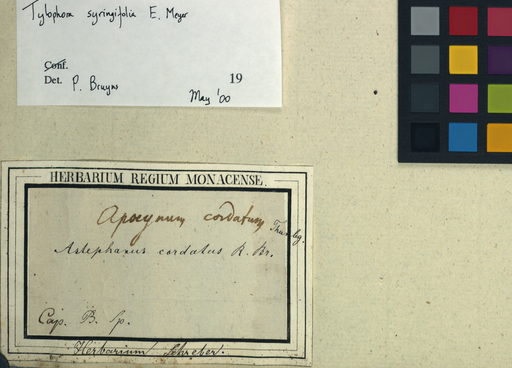 Tylophora syringifolia E. Meyer
Conf.
Det. P. Bruyns 19
May '00
HERBARIUM REGIUM MONACENSE.
Apocynum cordatum Thunbg.
Astephanus cordatus R. Br.
Cap. B. Sp.
Herbarium Schreber.